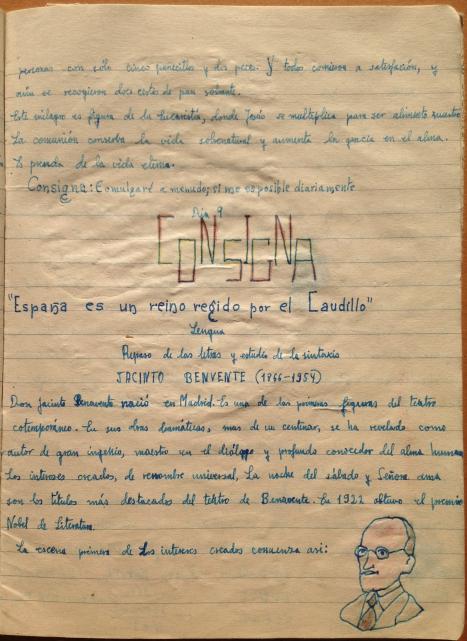 personas con sólo cinco panecillos y dos peces. Y todos comieron a satisfacción, y
aún se recogieron doce cestos de pan sobrante.
Este milagro es figura de la Eucaristía, donde Jesús se multiplica para ser alimento nuestro
La comunión conserva la vida sobrenatural y aumenta la gracia en el alma.
Es prenda de la vida eterna.
Consigna: Comulgaré a menudo; si me es posible diariamente
Día 9
CONSIGNA
"España es un reino regido por el Caudillo"
Lengua
Repaso de las letras y estudio de la sintaxis
JACINTO BENVENTE (1866-1954)
Don Jacinto Benavente nació en Madrid. Es una de las primeras figuras del teatro
cotemporáneo. En sus obras dramáticas, mas de un centenar, se ha revelado como
autor de gran ingenio, maestro en el diálogo y profundo conocedor del alma humana
Los intereses creados, de renombre universal, La noche del sábado y Señora ama
son los títulos más destacados del teatro de Benavente. En 1922 obtuvo el premio
Nobel de Literatura.
La escena primera de Los intereses creados comienza así: